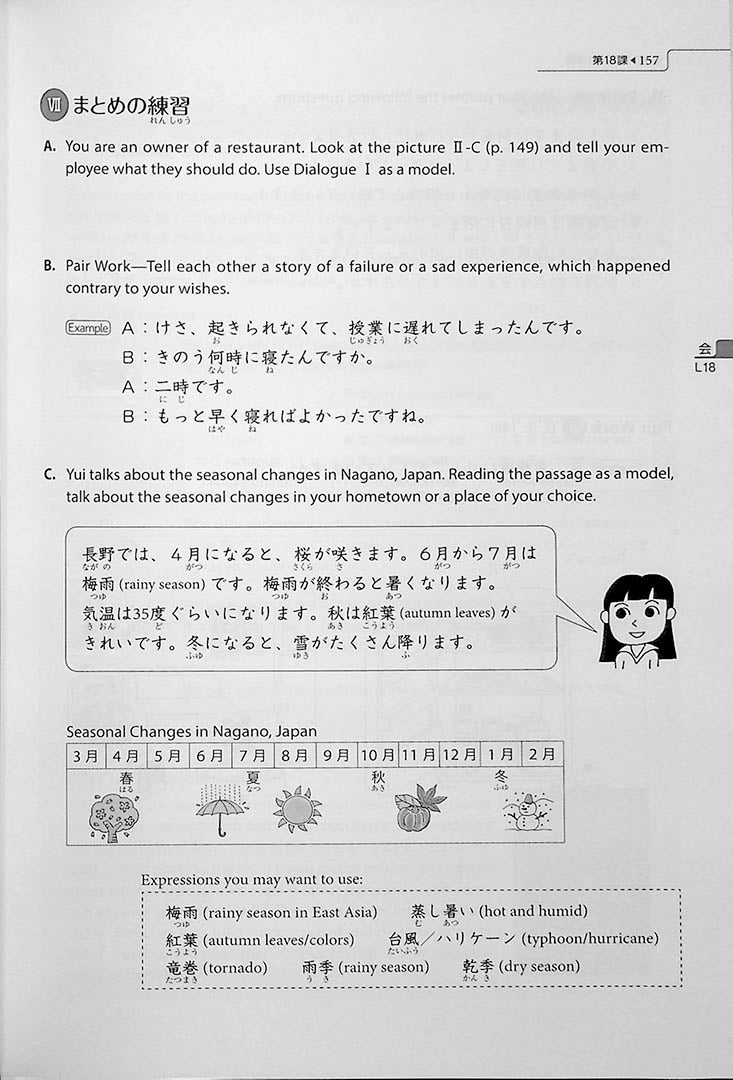 第18課◀157
Ⅶ まとめの練習
れんしゅう
A. You are an owner of a restaurant. Look at the picture Ⅱ-C (p. 149) and tell your em-
ployee what they should do. Use Dialogue Ⅰ as a model.
B. Pair Work—Tell each other a story of a failure or a sad experience, which happened
contrary to your wishes.
Example A：けさ、起きられなくて、授業に遅れてしまったんです。
お じゅぎょう おく
B：きのう何時に寝たんですか。
なんじ ね
A：二時です。
にじ
B：もっと早く寝ればよかったですね。
はや ね
会
L18
C. Yui talks about the seasonal changes in Nagano, Japan. Reading the passage as a model,
talk about the seasonal changes in your hometown or a place of your choice.
長野では、４月になると、桜が咲きます。６月から７月は
ながの がつ さくら さ がつ がつ
梅雨 (rainy season) です。梅雨が終わると暑くなります。
つゆ つゆ お あつ
気温は35度ぐらいになります。秋は紅葉 (autumn leaves) が
きおん ど あき こうよう
きれいです。冬になると、雪がたくさん降ります。
ふゆ ゆき ふ
Seasonal Changes in Nagano, Japan
3月 4月 5月 6月 7月 8月 9月 10月 11月 12月 1月 2月
春 夏 秋 冬
はる なつ あき ふゆ
Expressions you may want to use:
梅雨 (rainy season in East Asia) 蒸し暑い (hot and humid)
つゆ む あつ
紅葉 (autumn leaves/colors) 台風／ハリケーン (typhoon/hurricane)
こうよう たいふう
竜巻 (tornado) 雨季 (rainy season) 乾季 (dry season)
たつまき うき かんき